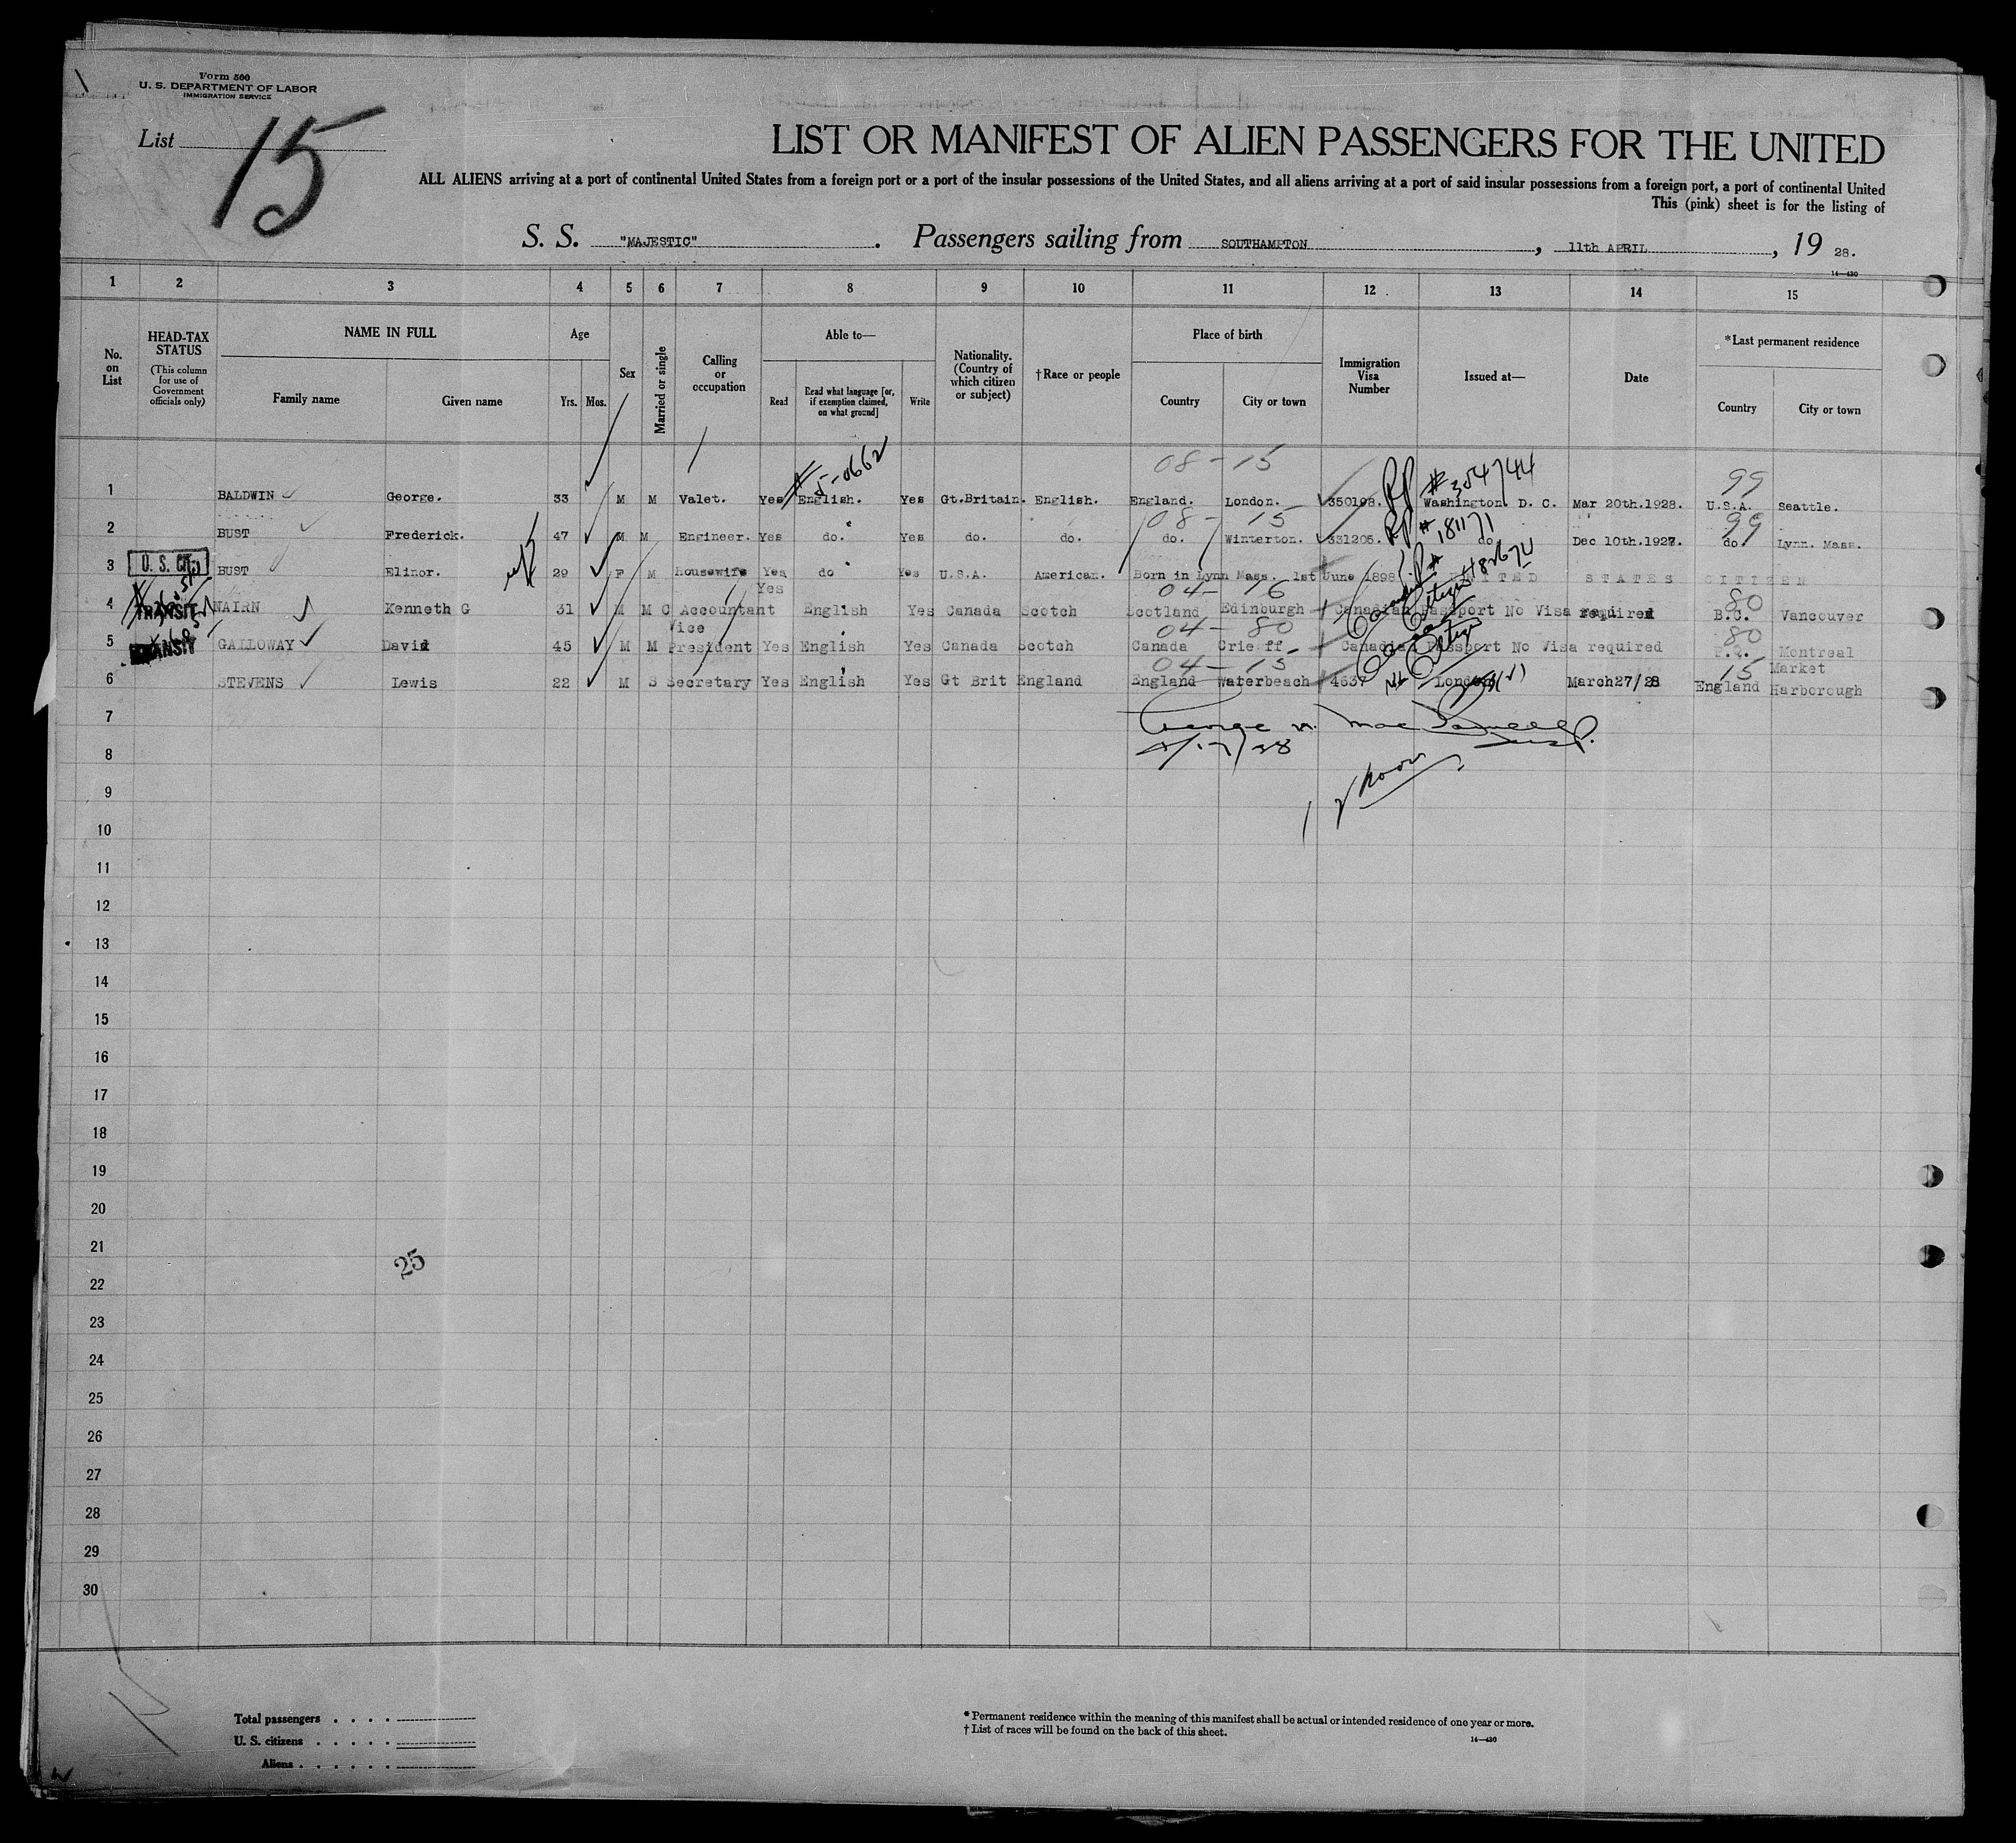 Form 500
U. S. DEPARTMENT OF LABOR
IMMIGRATION SERVICE
List 15
LIST OR MANIFEST OF ALIEN PASSENGERS FOR THE UNITED
ALL ALIENS arriving at a port of continental United States from a foreign port or a port of the insular possessions of the United States, and all aliens arriving at a port of said insular possessions from a foreign port, a port of continental United
This (pink) sheet is for the listing of
S. S. "MAJESTIC" . Passengers sailing from SOUTHAMPTON , 11th APRIL , 19 28.
14—430
1 2 3 4 5 6 7 8 9 10 11 12 13 14 15
No. on List
HEAD-TAX STATUS
(This column for use of Government officials only)
NAME IN FULL
Family name Given name
Age
Yrs. Mos.
Sex
Married or single
Calling or occupation
Able to—
Read Read what language [or, if exemption claimed, on what ground] Write
Nationality. (Country of which citizen or subject)
†Race or people
Place of birth
Country City or town
Immigration Visa Number
Issued at—
Date
*Last permanent residence
Country City or town
# 5-0662 08-15 RP #354744 99
1 BALDWIN George. 33 M M Valet. Yes English. Yes Gt.Britain. English. England. London. 350198. Washington. D. C. Mar 20th.1928. U.S.A. Seattle.
08-15 RP #181171 99
2 BUST Frederick. 47 M M Engineer. Yes do. Yes do. do. do. Winterton. 331205. do. Dec 10th.1927. do. Lynn. Mass.
U. S. CIT. P.P. #482674
3 BUST Elinor. 29 F M housewife Yes do Yes U.S.A. American. Born in Lynn Mass. 1st June 1898 UNITED STATES CITIZEN
Yes 04-16 Canadian Citizen 80
4 TRANSIT NAIRN Kenneth G 31 M M C Accountant English Yes Canada Scotch Scotland Edinburgh Canadian Passport No Visa required B.C. Vancouver
Vice 04-80 Canadian Citizen 80
5 TRANSIT GALLOWAY David 45 M M President Yes English Yes Canada Scotch Canada Crieff Canadian Passport No Visa required P.Q. Montreal
04-15 15 Market
6 STEVENS Lewis 22 M S Secretary Yes English Yes Gt Brit England England Waterbeach 4637 London March27/28 England Harborough
7
8 4/17/28
9
10
11
12
13
14
15
16
17
18
19
20
21
25
22
23
24
25
26
27
28
29
30
Total passengers . . . .
U. S. citizens . . . . .
Aliens . . . . . .
* Permanent residence within the meaning of this manifest shall be actual or intended residence of one year or more.
† List of races will be found on the back of this sheet.
14—430